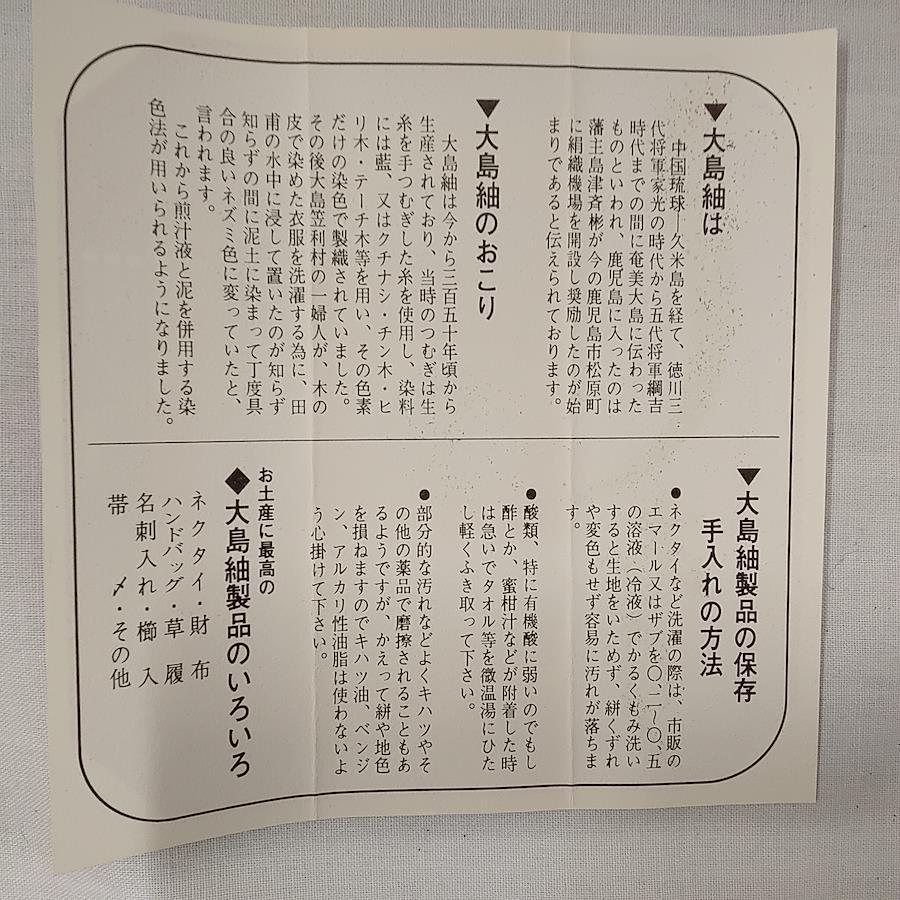 ▼大島紬は
中国琉球―久米島を経て、徳川三
代将軍家光の時代から五代将軍綱吉
時代までの間に奄美大島に伝わった
ものといわれ、鹿児島に入ったのは
藩主島津斉彬が今の鹿児島市松原町
に絹織機場を開設し奨励したのが始
まりであると伝えられております。
▼大島紬のおこり
大島紬は今から三百五十年頃から
生産されており、当時のつむぎは生
糸を手つむぎした糸を使用し、染料
には藍、又はクチナシ・チン木・ヒ
リ木・テーチ木等を用い、その色素
だけの染色で製織されていました。
その後大島笠利村の一婦人が、木の
皮で染めた衣服を洗濯する為に、田
甫の水中に浸して置いたのが知らず
知らずの間に泥土に染まって丁度具
合の良いネズミ色に変っていたと、
言われます。
これから煎汁液と泥を併用する染
色法が用いられるようになりました。
▼大島紬製品の保存
手入れの方法
●ネクタイなど洗濯の際は、市販の
エマール又はザブを〇、二〜〇、五
の溶液（冷液）でかるくもみ洗い
すると生地をいためず、絣くずれ
や変色もせず容易に汚れが落ちま
す。
●酸類、特に有機酸に弱いのでもし
酢とか、蜜柑汁などが附着した時
は急いでタオル等を微温湯にひた
し軽くふき取って下さい。
●部分的な汚れなどよくキハツやそ
の他の薬品で磨擦されることもあ
るようですが、かえって絣や地色
を損ねますのでキハツ油、ベンジ
ン、アルカリ性油脂は使わないよ
う心掛けて下さい。
お土産に最高の
◆大島紬製品のいろいろ
ネクタイ・財布
ハンドバッグ・草履
名刺入れ・櫛入
帯〆・その他